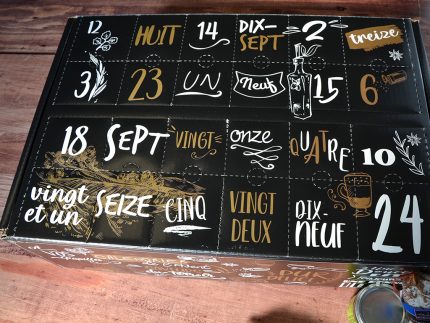 12 HUIT 14 DIX-SEPT 2 treize
3 23 UN Neuf 15 6
18 SEPT VINGT onze QUATRE 10
vingt et un SEIZE CINQ VINGT DEUX DIX-NEUF 24